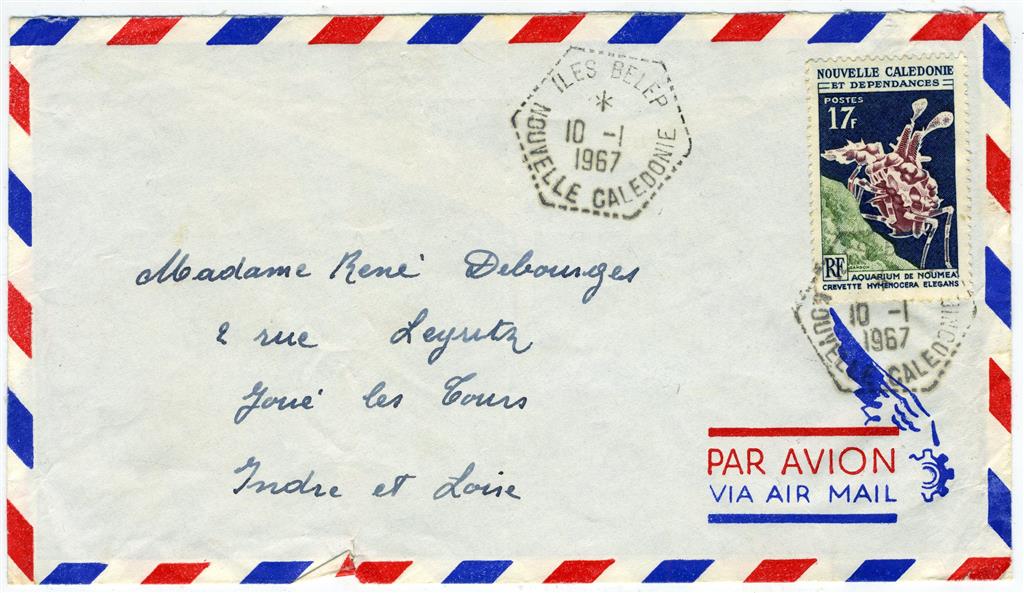 ILES BELEP
*
10 -1
1967
NOUVELLE CALEDONIE
NOUVELLE CALEDONIE
ET DEPENDANCES
POSTES
17F
RF
AQUARIUM DE NOUMEA
CREVETTE HYMENOCERA ELEGANS
10 -1
1967
NOUVELLE CALEDONIE
Madame René Debourges
2 rue Leyritz
Joué les Tours
Indre et Loire
PAR AVION
VIA AIR MAIL